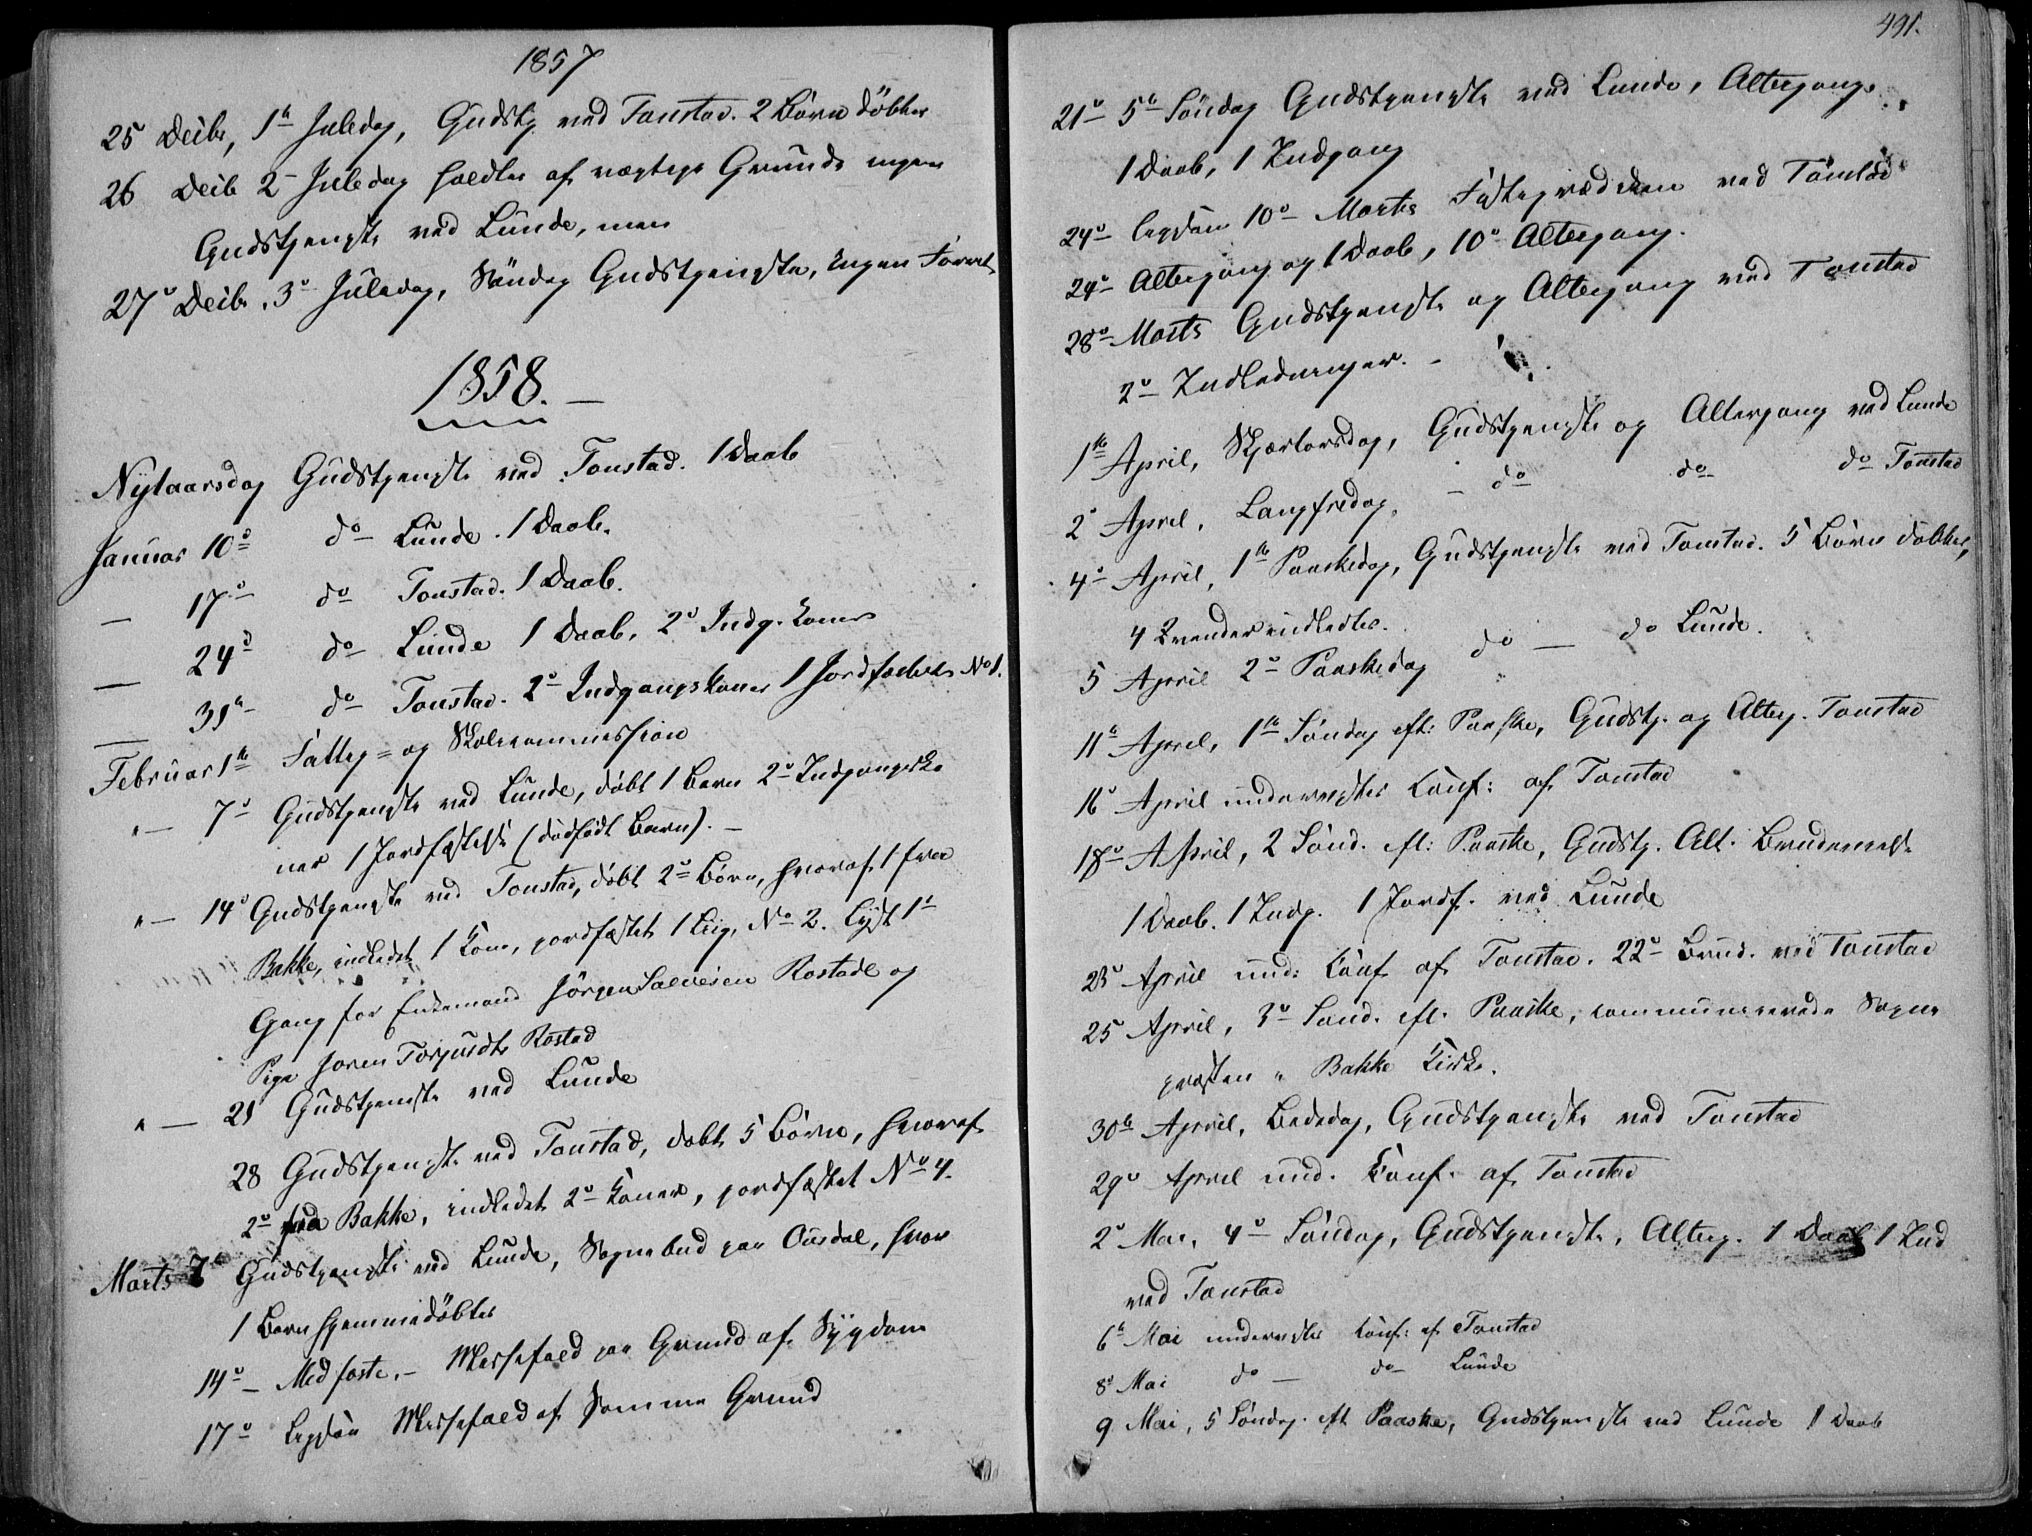 1857
25 Decbr, 1ste Juledag, Gudstj. ved Tonstad. 2 Børn døbtes
26 Decb 2– Juledag holdtes af vægtige Grunde ingen
Gudstjeneste ved Lunde, men
27de Decbr. 3die Juledag, Søndag Gudstjeneste, ingen Forret.
1858.
Nytaarsdag Gudstjeneste ved Tonstad. 1 Daab
Januar 10de do Lunde. 1 Daab.
— 17de do Tonstad. 1 Daab.
— 24de do Lunde 1 Daab, 2de Indg. Koner
— 31te do Tonstad. 2de Indgangskoner 1 Jordfæstelse No 1.
Februar 1ste Fattig= og Skolecommission
" — 7de Gudstjeneste ved Lunde, døbt 1 Barn 2de Indgangsko
ner 1 Jordfæstelse (dødfødt Barn). —
" — 14de Gudstjeneste ved Tonstad, døbt 2de Børn, hvoraf 1 fra
Bakke, indledet 1 Kone, jordfæstet 1 Liig, No 2. Lyst 1ste
Gang for Enkemand Jörgen Salvesen Rostad og
Pige Joren Torjusdtr Rostad
" — 21 Gudstjeneste ved Lunde
28 Gudstjeneste ved Tonstad, døbt 5 Børn, hvoraf
2de fra Bakke, indledet 2de Koner, jordfæstet No 4.
Marts 7de Gudstjeneste ved Lunde, Sognebud paa Ousdal, hvor
1 Barn hjemmedøbtes
14de — Midfaste. — Messefald paa Grund af Sygdom
17de Messefald af samme Grund
491.
21de 5te Søndag Gudstjeneste ved Lunde, Altergang.
1 Daab, 1 Indgang
24de Marts Fasteprædiken ved Tonstad
24de Altergang og 1 Daab, Altergang.
28de Marts Gudstjeneste og Altergang ved Tonstad
2de Indledninger. –
1ste April, Skjærtorsdag, Gudstjeneste og Altergang ved Lunde
2 April, Langfredag, — do do do Tonstad
4de April, 1ste Paaskedag, Gudstjeneste ved Tonstad. 5 Børn døbtes,
4 Kvinder indledtes.
5 April 2den Paaskedag do — do Lunde.
11te April, 1ste Søndag eft: Paaske, Gudstj. og Alterg. Tonstad
16de April undervistes Conf: af Tonstad
18de April, 2 Sønd. eft: Paaske, Gudstj. Alt. Brudevielse
1 Daab. 1 Indg. 1 Jordf. ved Lunde
23de April und: Conf. af Tonstad. 22de Brud. ved Tonstad
25 April, 3de Sønd. eft. Paaske, communicerede Sogne
præsten i Bakke Kirke.
30te April, Bededag, Gudstjeneste ved Tonstad
29de April und. Conf. af Tonstad
2de Mai, 4de Søndag, Gudstjeneste, Alterg. 1 Daab 1 Ind
ved Tonstad
6te Mai undervistes Conf: af Tonstad
8de Mai do — do Lunde
9 Mai, 5 Søndag eft Paaske, Gudstjeneste ved Lunde 1 Daab